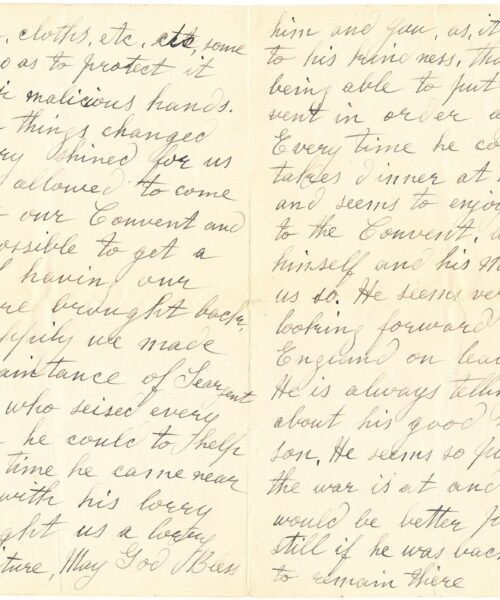 cloths, etc, etc, some
so as to protect it
malicious hands.
things changed
shined for us
allowed to come
our Convent and
possible to get a
having our
brought back,
happily we made
aintance of Seargent
who seised every
he could to help
time he came near
with his lorry
ght us a lorry
iture, May God Bless
him and you, as, it
to his kindness, tha
being able to put
vent in order a
Every time he co
takes dinner at
and seems to enjoy
to the Convent,
himself and his m
us so. He seems ver
looking forward
England on leav
He is always talkin
about his good
son. He seems so p
the war is at and
would be better p
still if he was back
to remain there